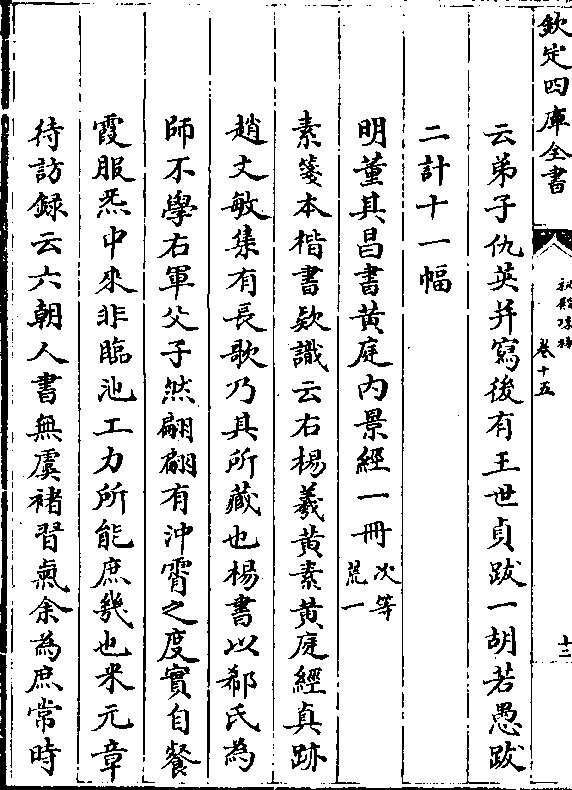 欽定四庫全書
秘殿珠林
卷十五
十三
云弟子仇英幷寫後有王世貞跋一胡若愚跋
二計十一幅
明董其昌書黄庭内景經一冊次等荒一
素箋本楷書欵識云右楊羲黄素黄庭經真跡
趙文敏集有長歌乃其所藏也楊書以郗氏為
師不學右軍父子然翩翩有沖霄之度實自餐
霞服炁中來非臨池工力所能庶幾也米元章
待訪録云六朝人書無虞褚習氣余為庶常時